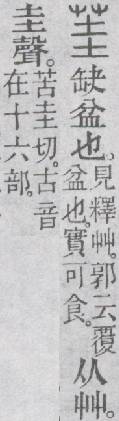 茥缺盆也。見釋艸。郭云。覆盆也。實可食。从艸。
圭聲。苦圭切。古音在十六部。